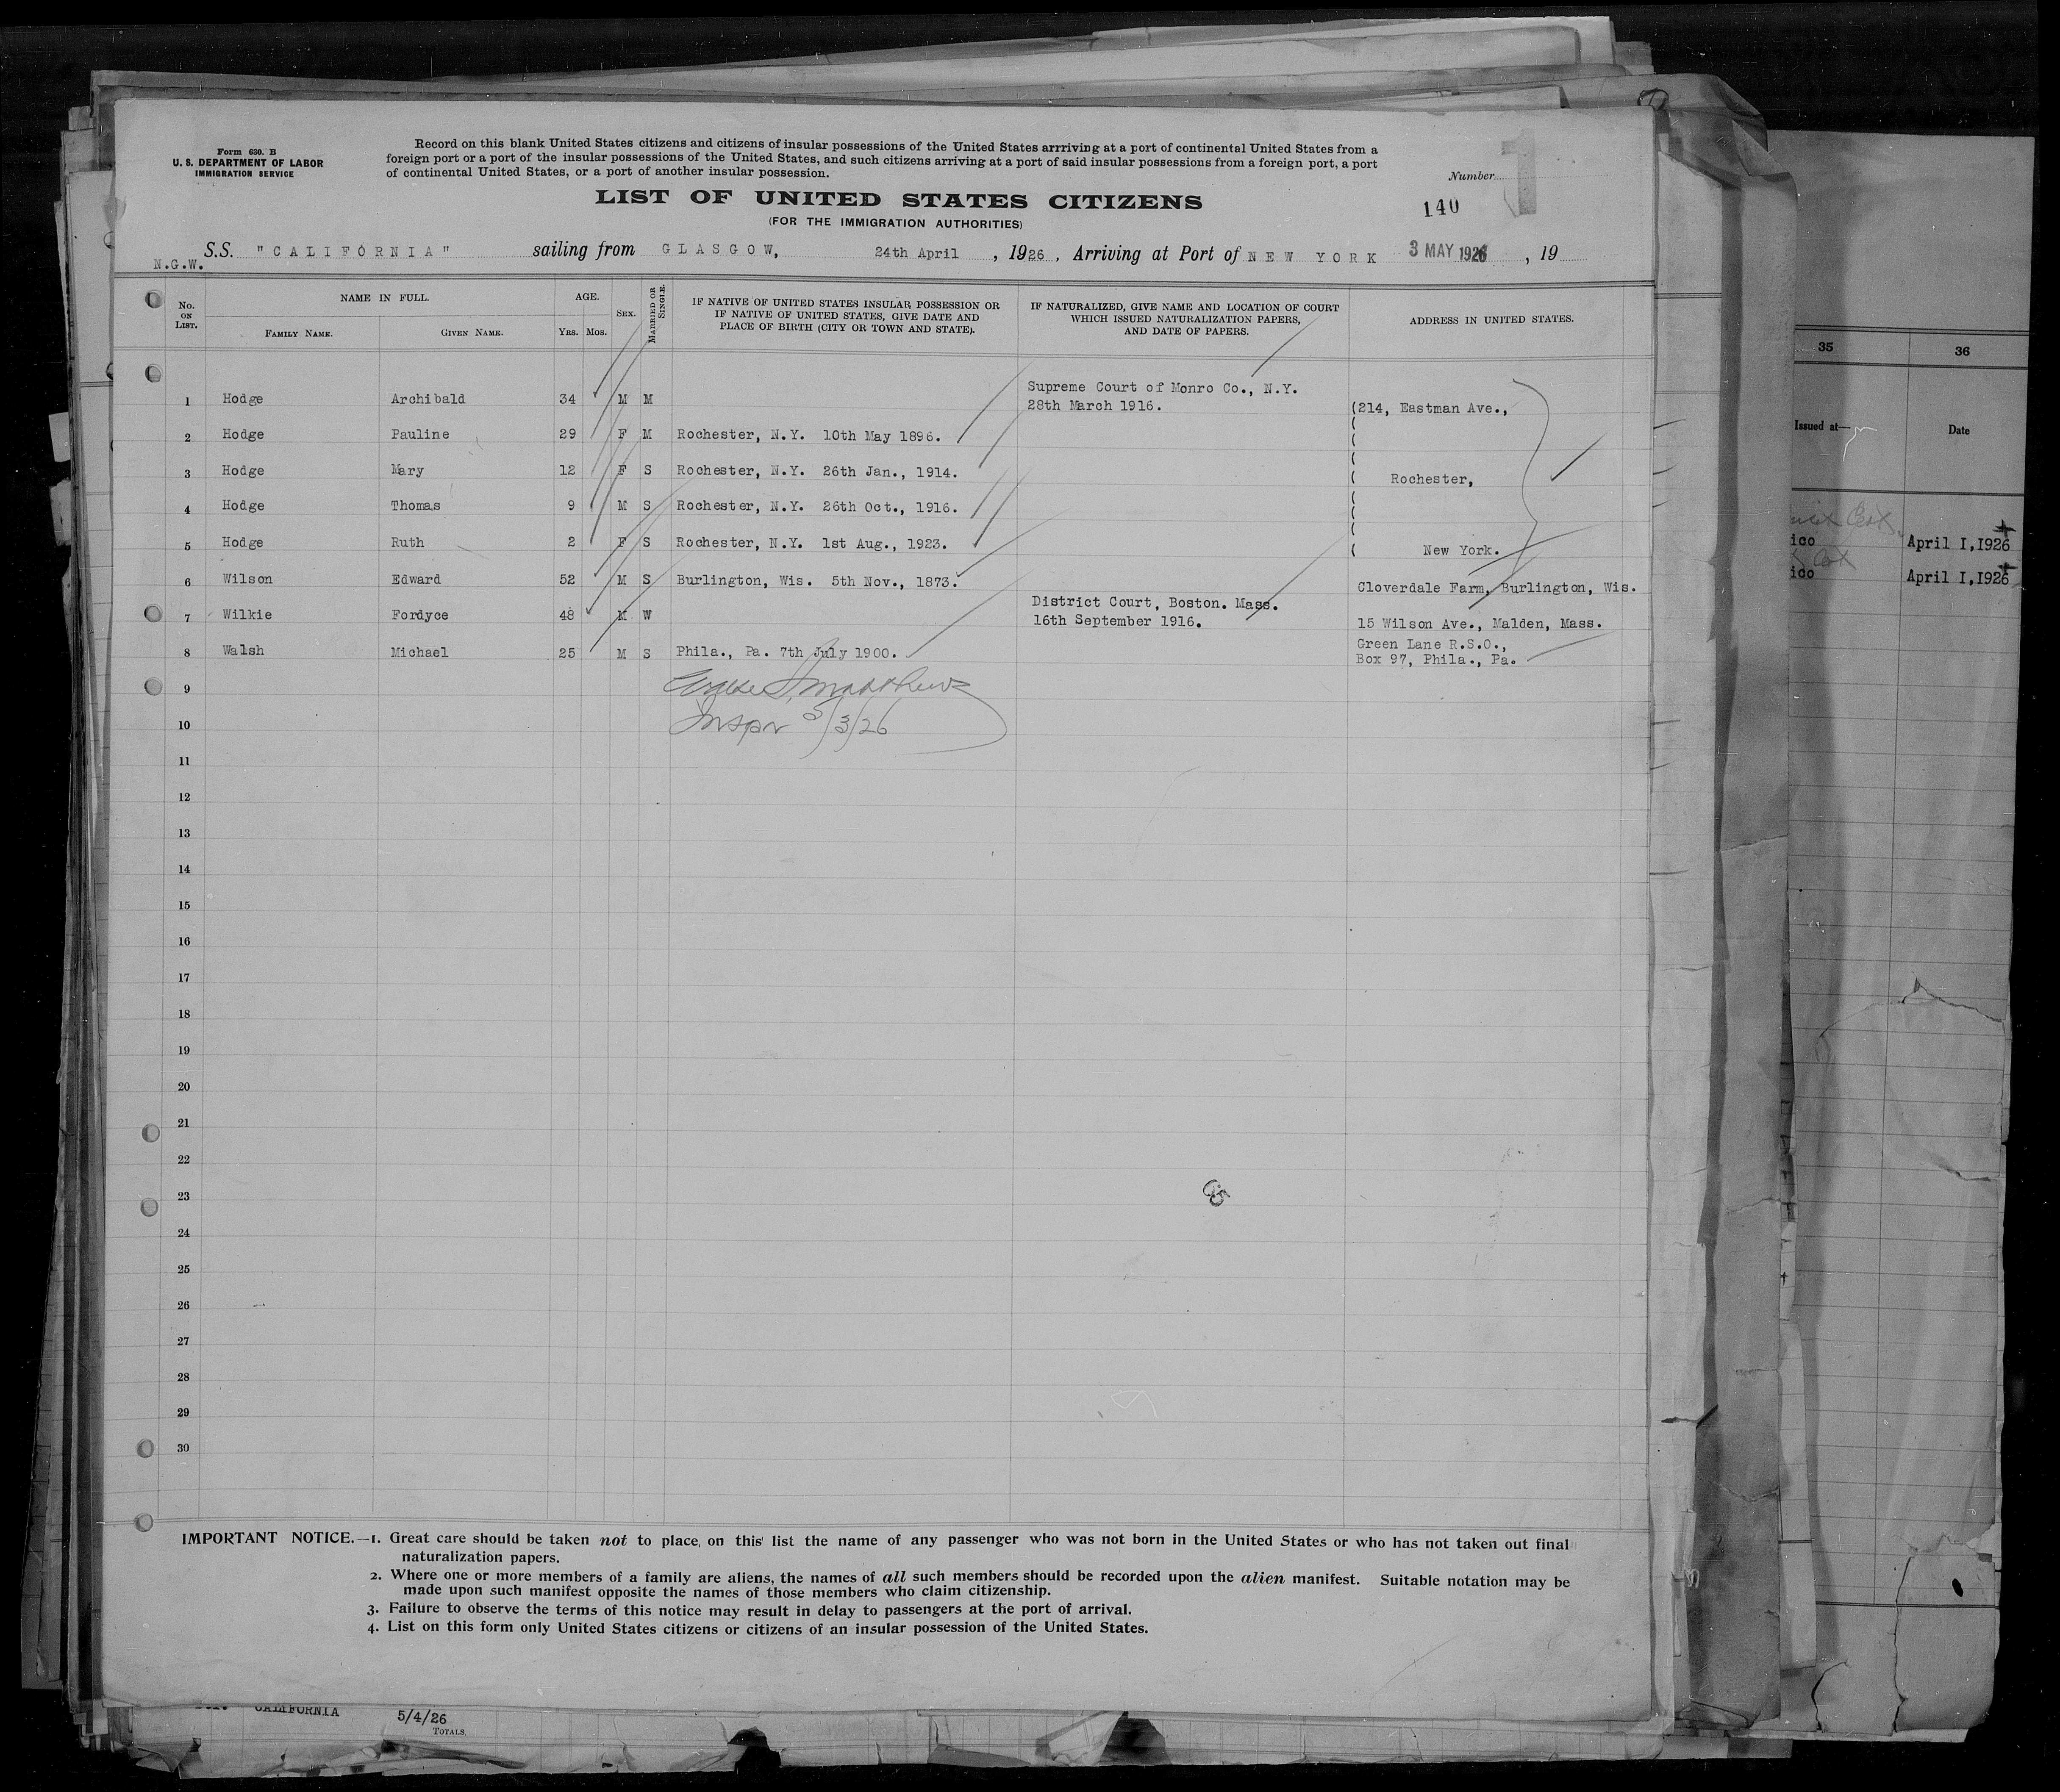 Form 630. B
U. S. DEPARTMENT OF LABOR
IMMIGRATION SERVICE
Record on this blank United States citizens and citizens of insular possessions of the United States arrriving at a port of continental United States from a
foreign port or a port of the insular possessions of the United States, and such citizens arriving at a port of said insular possessions from a foreign port, a port
of continental United States, or a port of another insular possession.
Number
1
140
LIST OF UNITED STATES CITIZENS
(FOR THE IMMIGRATION AUTHORITIES)
S.S. "CALIFORNIA" sailing from GLASGOW, 24th April, 1926. Arriving at Port of NEW YORK 3 MAY 1926, 19
N.G.W.
No. ON LIST. NAME IN FULL. FAMILY NAME. GIVEN NAME. AGE. Yrs. Mos. SEX. MARRIED OR SINGLE. IF NATIVE OF UNITED STATES INSULAR POSSESSION OR IF NATIVE OF UNITED STATES, GIVE DATE AND PLACE OF BIRTH (CITY OR TOWN AND STATE). IF NATURALIZED, GIVE NAME AND LOCATION OF COURT WHICH ISSUED NATURALIZATION PAPERS, AND DATE OF PAPERS. ADDRESS IN UNITED STATES.
1 Hodge Archibald 34 M M Supreme Court of Monro Co., N.Y. 28th March 1916. (214, Eastman Ave.,
2 Hodge Pauline 29 F M Rochester, N.Y. 10th May 1896.
3 Hodge Mary 12 F S Rochester, N.Y. 26th Jan., 1914. Rochester,
4 Hodge Thomas 9 M S Rochester, N.Y. 26th Oct., 1916.
5 Hodge Ruth 2 F S Rochester, N.Y. 1st Aug., 1923. New York.
6 Wilson Edward 52 M S Burlington, Wis. 5th Nov., 1873. Cloverdale Farm, Burlington, Wis.
7 Wilkie Fordyce 48 M W District Court, Boston. Mass. 16th September 1916. 15 Wilson Ave., Malden, Mass.
8 Walsh Michael 25 M S Phila., Pa. 7th July 1900. Green Lane R.S.O., Box 97, Phila., Pa.
9 Matthews
10 Inspr 5/3/26
11
12
13
14
15
16
17
18
19
20
21
22
23
65
24
25
26
27
28
29
30
IMPORTANT NOTICE.—1. Great care should be taken not to place, on this list the name of any passenger who was not born in the United States or who has not taken out final
naturalization papers.
2. Where one or more members of a family are aliens, the names of all such members should be recorded upon the alien manifest. Suitable notation may be
made upon such manifest opposite the names of those members who claim citizenship.
3. Failure to observe the terms of this notice may result in delay to passengers at the port of arrival.
4. List on this form only United States citizens or citizens of an insular possession of the United States.
CALIFORNIA 5/4/26
TOTALS.
35 36
Issued at— Date
ico April 1,1926
ico April 1,1926